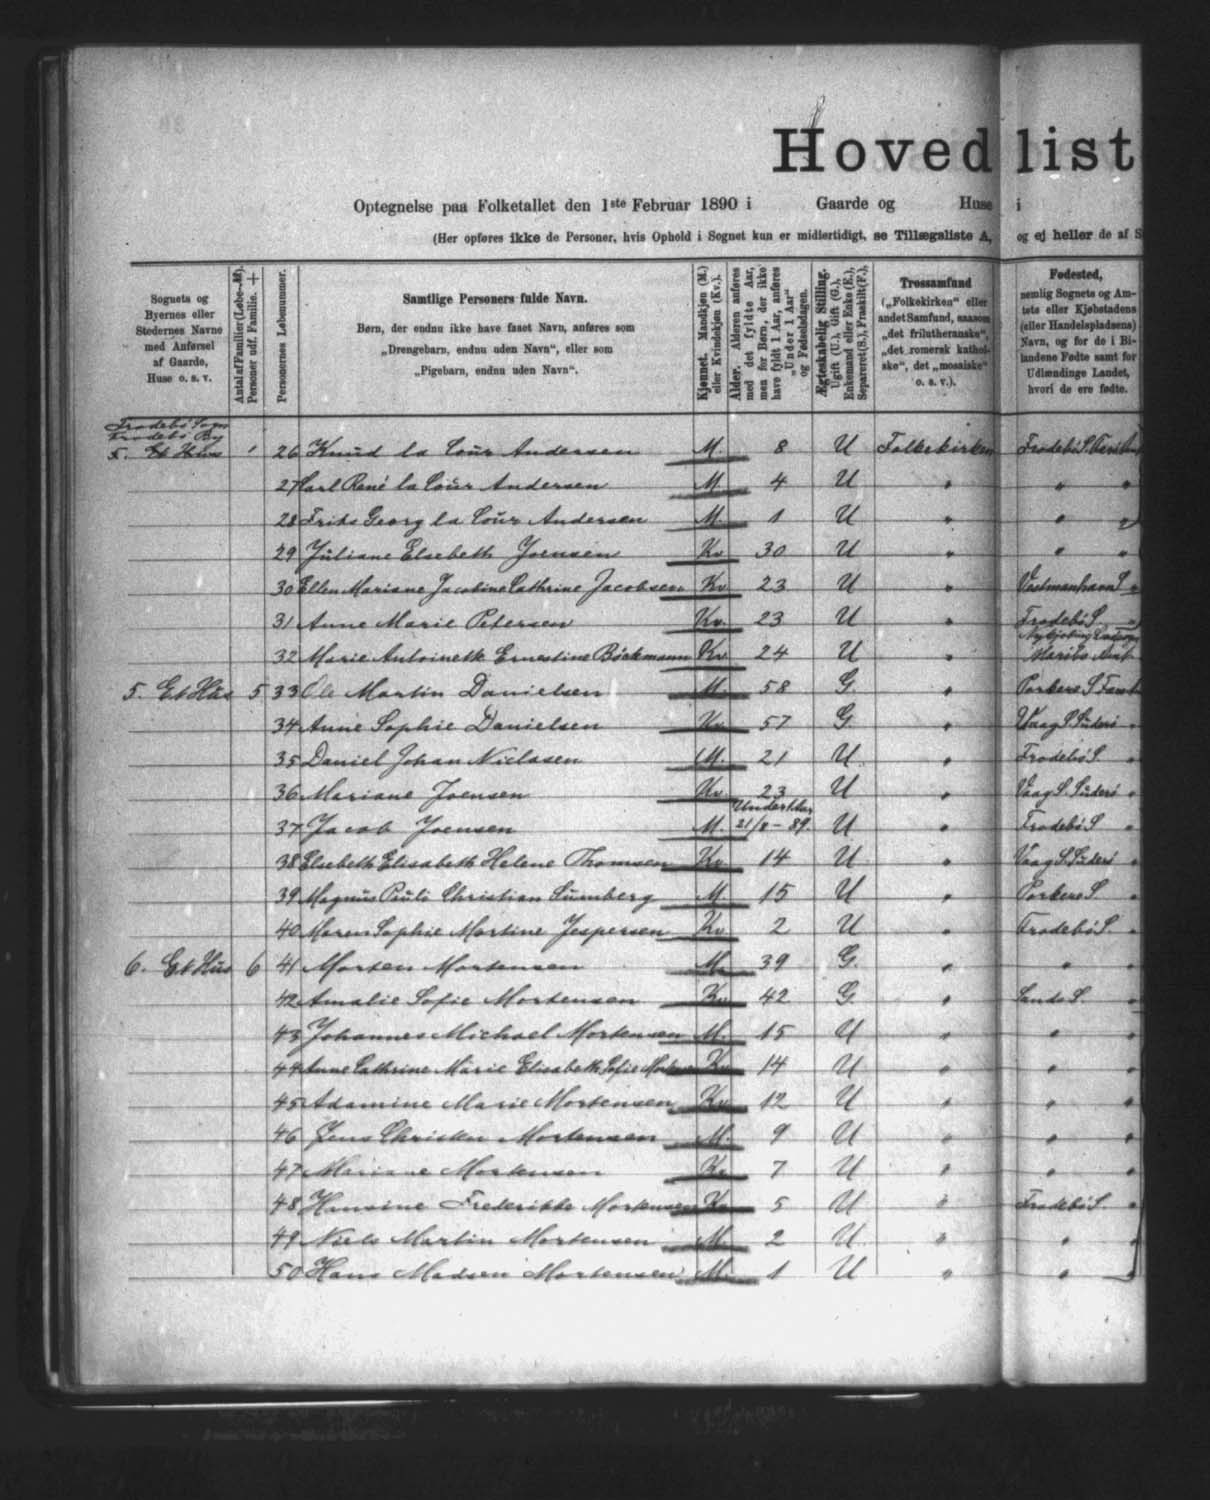 Hovedlist
Optegnelse paa Folketallet den 1ste Februar 1890 i Gaarde og Huse i
(Her opføres ikke de Personer, hvis Ophold i Sognet kun er midlertidigt, se Tillægsliste A, og ej heller de af S
Sognets og Byernes eller Stedernes Navne med Anførsel af Gaarde, Huse o. s. v.
Antal af Familier (Løbe-№). Personer udf. Familie. +
Personernes Løbenummer.
Samtlige Personers fulde Navn.
Børn, der endnu ikke have faaet Navn, anføres som
„Drengebarn, endnu uden Navn“, eller som
„Pigebarn, endnu uden Navn“.
Kjønnet. Mandkjøn (M.) eller Kvindekjøn (Kv.).
Alder. Alderen anføres med det fyldte Aar, men for Børn, der ikke have fyldt 1 Aar, anføres „Under 1 Aar“ og Fødselsdagen.
Ægteskabelig Stilling. Ugift (U.), Gift (G.), Enkemand eller Enke (E.), Separeret (S.), Fraskilt (F.).
Trossamfund („Folkekirken“ eller andet Samfund, saasom „det frilutheranske“, „det romersk katholske“, det „mosaiske“ o. s. v.).
Fødested, nemlig Sognets og Amtets eller Kjøbstadens (eller Handelspladsens) Navn, og for de i Bilandene Fødte samt for Udlændinge Landet, hvori de ere fødte.
Frodebø Sogn
Frodebø By
5. Et Hus 1 26 Knud la Cour Andersen M. 8 U Folkekirken Frodebø S.
27 Carl René la Cour Andersen M. 4 U " " "
28 Frits Georg la Cour Andersen M. 1 U " "
29 Juliane Elsebeth Joensen Kv 30 U " " "
30 Ellen Mariane Jacobine Cathrine Jacobsen Kv 23 U " Vestmanhavn S "
31 Anne Marie Petersen Kv. 23 U " Frodebø S. "
32 Marie Antoinette Ernestine Bøckmann Kv. 24 U " Nykjøbing
5. Et Hus 5 33 Ole Martin Danielsen M. 58 G. " Porkere S
34 Anne Sophie Danielsen Kv. 57 G. " Vaag S. Suderø "
35 Daniel Johan Niclasen M. 21 U. " Frodebø S. "
36 Mariane Joensen Kv. 23 U " Vaag S. Suderø "
37 Jacob Joensen M. Under 1 Aar 21/8-89. U " Frodebø S "
38 Elsebeth Elisabeth Helene Thomsen Kv. 14 U " Vaag S. Suderø "
39 Magnus Pauli Christian Sumberg M. 15 U " Porkere S. "
40 Maren Sophie Martine Jespersen Kv. 2 U " Frodebø S. "
6. Et Hus 6 41 Morten Mortensen M. 39 G. " " "
42 Amalie Sofie Mortensen Kv. 42 G. " Sands S. "
43 Johannes Michael Mortensen M. 15 U " " "
44 Anne Cathrine Marie Elisabeth Sofie Kv. 14 U " " "
45 Adamine Marie Mortensen Kv. 12 U " " "
46 Jens Mortensen M. 9 U " " "
47 Mariane Mortensen Kv 7 U " " "
48 Hansine Frederikke Mortensen Kv 5 U " Frodebø S. "
49 Niels Martin Mortensen M. 2 U " "
50 Hans Madsen Mortensen M. 1 U " "